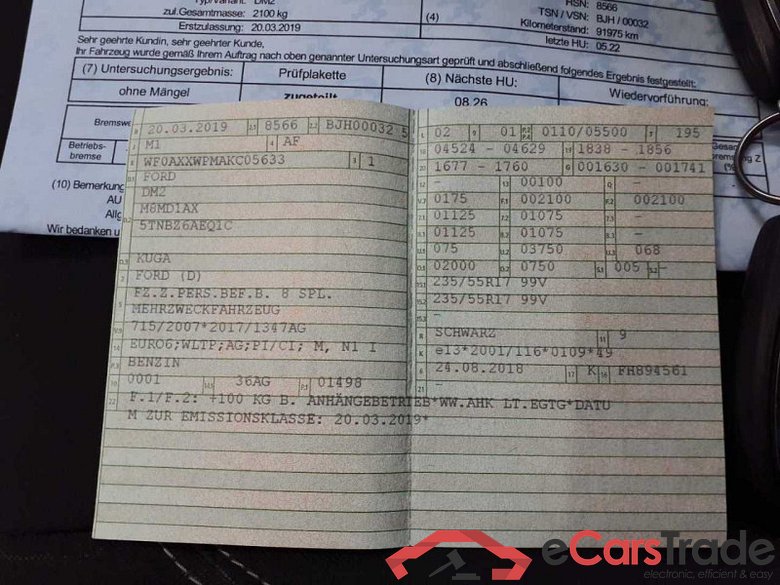 Typ/Variant: DM2
zul.Gesamtmasse: 2100 kg
Erstzulassung: 20.03.2019
(4)
HSN: 8566
TSN / VSN: BJH / 00032
Kilometerstand: 91975 km
letzte HU: 05.22
Sehr geehrte Kundin, sehr geehrter Kunde,
Ihr Fahrzeug wurde gemäß Ihrem Auftrag nach oben genannter Untersuchungsart geprüft und abschließend folgendes Ergebnis festgestellt:
(7) Untersuchungsergebnis: Prüfplakette (8) Nächste HU: Wiedervorführung:
ohne Mängel zugeteilt 08.26
Bremswe
Betriebs-
bremse
(10) Bemerkung
AU
Allg
Wir bedanken u
B 20.03.2019 2.1 8566 2.2 BJH00032 5
J M1 4 AF
E WF0AXXWPMAKC05633 3 1
D.1 FORD
DM2
D.2 M8MD1AX
5TNBZ6AEQ1C
D.3 KUGA
2 FORD (D)
5 FZ.Z.PERS.BEF.B. 8 SPL.
MEHRZWECKFAHRZEUG
V.9 715/2007*2017/1347AG
14 EURO6;WLTP;AG;PI/CI; M, N1 I
P.3 BENZIN
10 0001 14.1 36AG P.1 01498
22 F.1/F.2: +100 KG B. ANHÄNGEBETRIEB*WW.AHK LT.EGTG*DATU
M ZUR EMISSIONSKLASSE: 20.03.2019*
L 02 9 01 P.2 P.4 0110/05500 T 195
18 04524 - 04629 19 1838 - 1856
20 1677 - 1760 G 001630 - 001741
12 - 13 00100 Q -
V.7 0175 F.1 002100 F.2 002100
7.1 01125 7.2 01075 7.3 -
8.1 01125 8.2 01075 8.3 -
U.1 075 U.2 03750 U.3 068
O.1 02000 O.2 0750 S.1 005 S.2 -
15.1 235/55R17 99V
15.2 235/55R17 99V
15.3 -
R SCHWARZ 11 9
K e13*2001/116*0109*49
6 24.08.2018 17 K 16 FH894561
21 -
eCarsTrade
electronic, efficient & easy